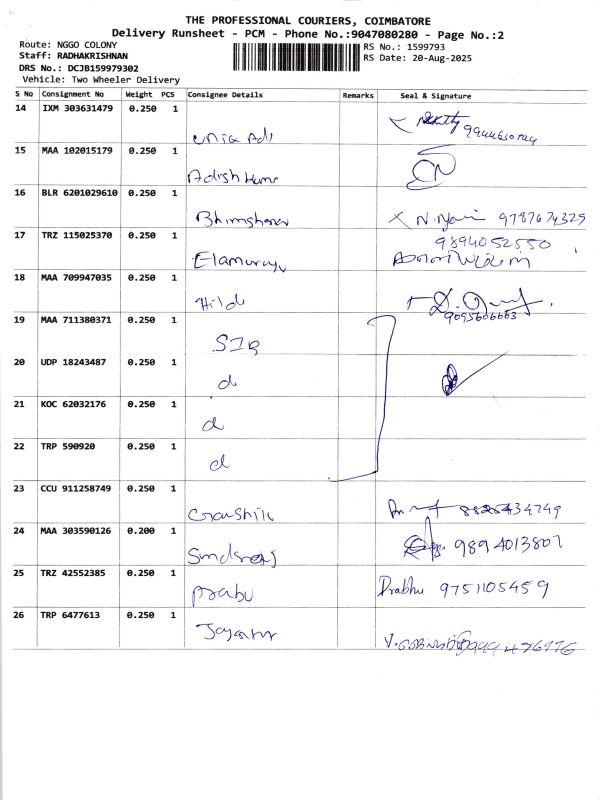 THE PROFESSIONAL COURIERS, COIMBATORE
Delivery Runsheet - PCM - Phone No.:9047080280 - Page No.:2
Route: NGGO COLONY
Staff: RADHAKRISHNAN
DRS No.: DCJB159979302
Vehicle: Two Wheeler Delivery
RS No.: 1599793
RS Date: 20-Aug-2025
S No Consignment No Weight PCS Consignee Details Remarks Seal & Signature
14 IXM 303631479 0.250 1
15 MAA 102015179 0.250 1
16 BLR 6201029610 0.250 1 9787674329
17 TRZ 115025370 0.250 1 9894052550
18 MAA 709947035 0.250 1 9095606663
19 MAA 711380371 0.250 1 SIB
20 UDP 18243487 0.250 1 d
21 KOC 62032176 0.250 1 d
22 TRP 590920 0.250 1 d
23 CCU 911258749 0.250 1
24 MAA 303590126 0.200 1 9894013807
25 TRZ 42552385 0.250 1 Prabu Prabhu 9751105459
26 TRP 6477613 0.250 1